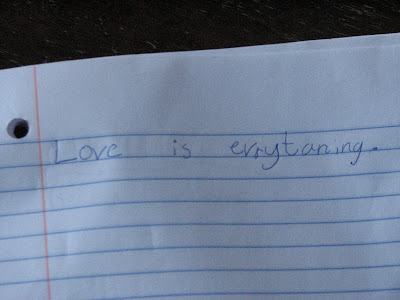 Love is evrytaning.